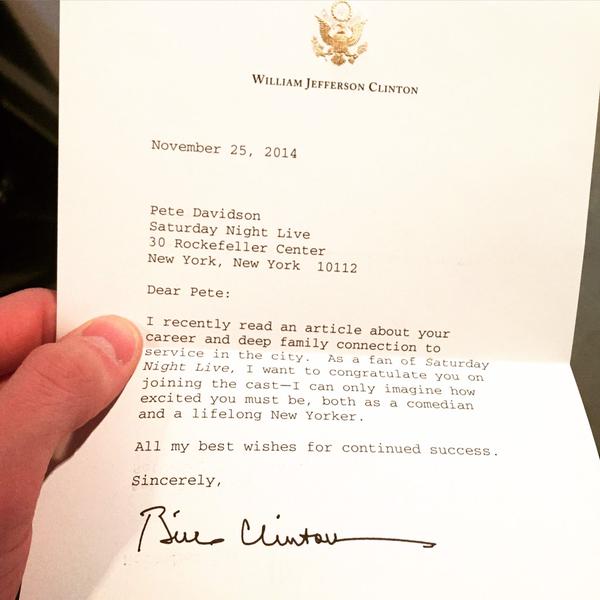 WILLIAM JEFFERSON CLINTON
November 25, 2014
Pete Davidson
Saturday Night Live
30 Rockefeller Center
New York, New York 10112
Dear Pete:
I recently read an article about your
career and deep family connection to
service in the city. As a fan of Saturday
Night Live, I want to congratulate you on
joining the cast—I can only imagine how
excited you must be, both as a comedian
and a lifelong New Yorker.
All my best wishes for continued success.
Sincerely,
Bill Clinton